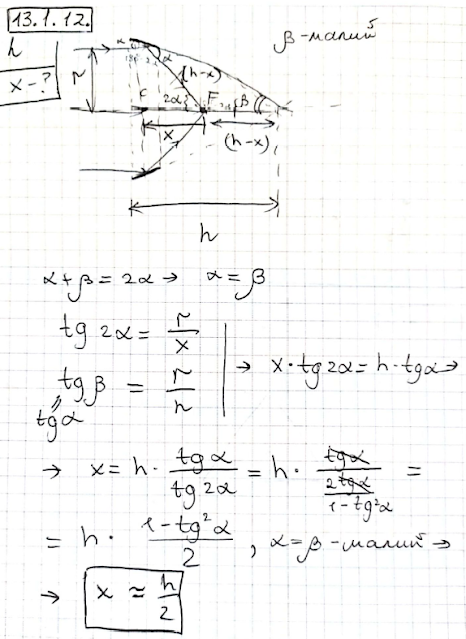 13.1.12.
h
x-?
β-малий
r
α
α
(h-x)
F 2α F β
x
(h-x)
h
α+β=2α → α=β
tg 2α = r/x
tg β = r/h
tg α
→ x·tg2α = h·tgα →
→ x = h · tg α / tg 2α = h · tgα / (2tgα / 1-tg²α) =
= h · (1-tg²α) / 2 , α=β-малий →
→ x ≃ h/2